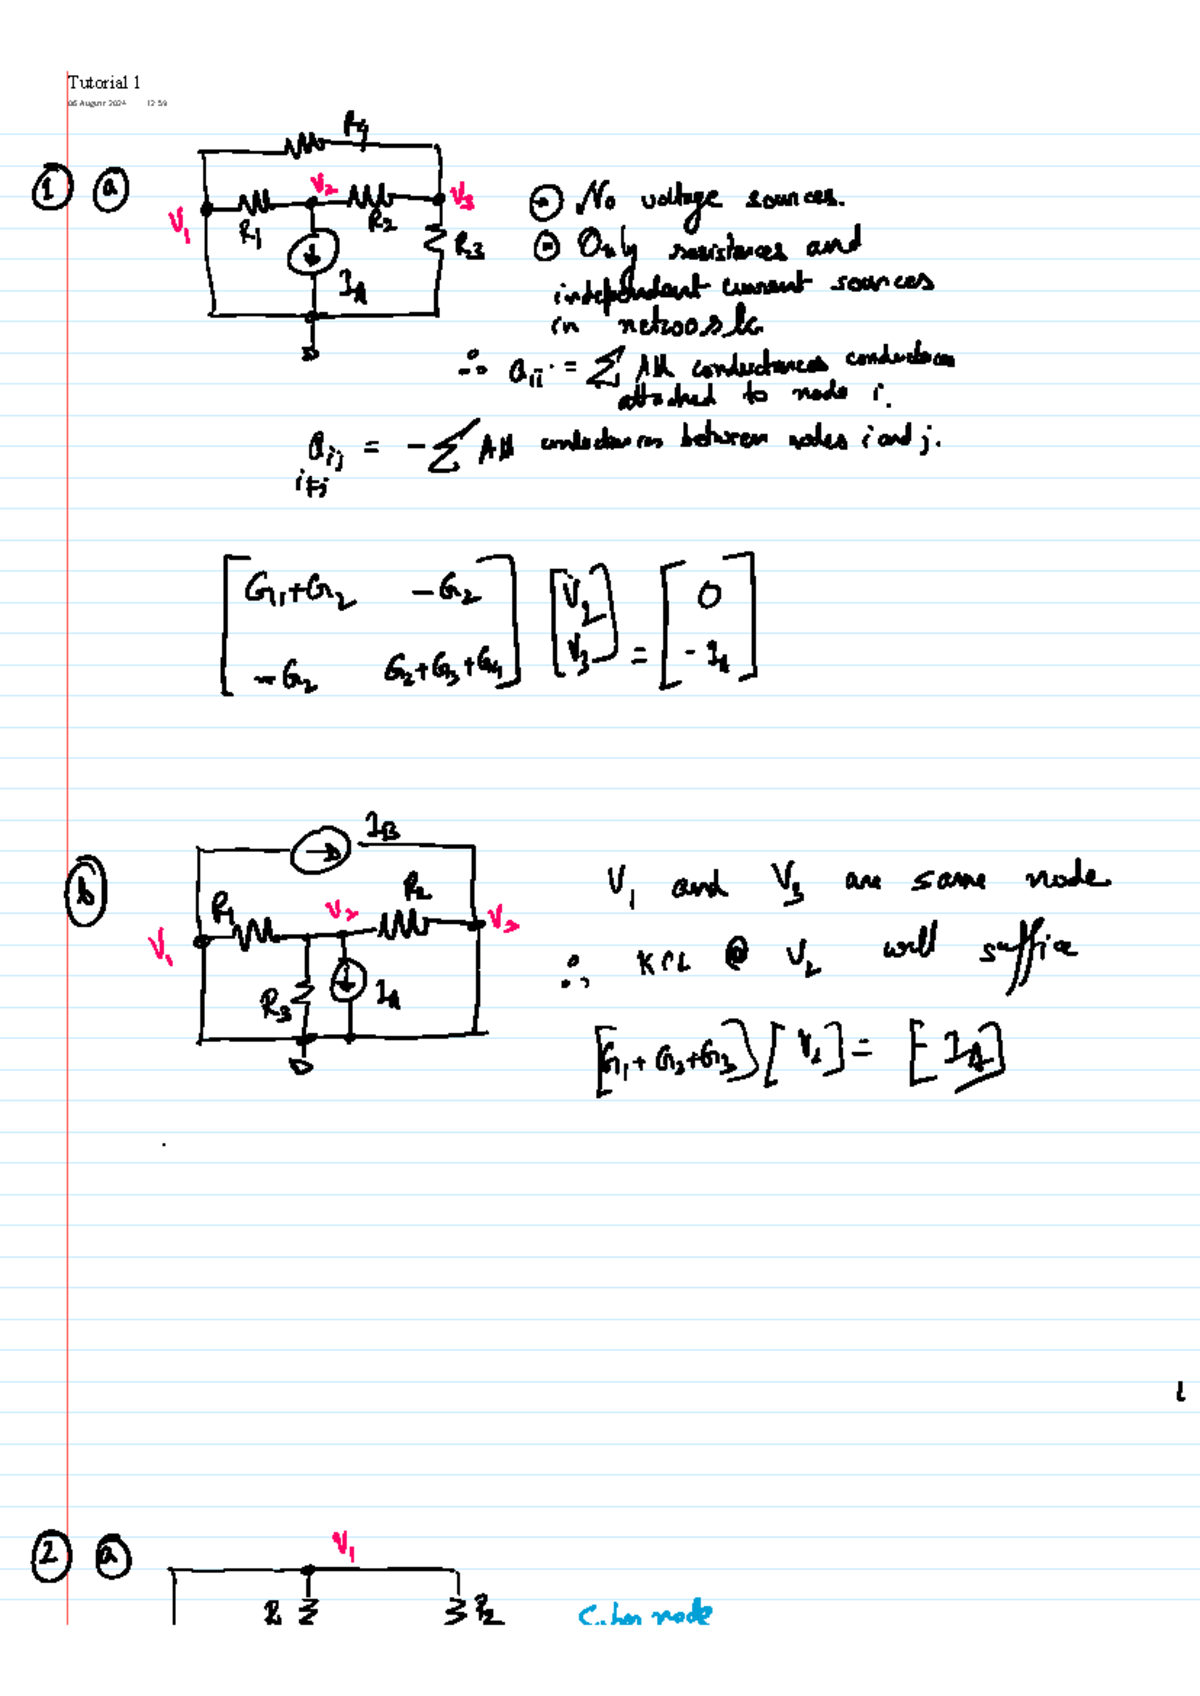 Tutorial 1
06 August 2024 12:59
1 a
R4
V1 R1 V2 R2 V3
IA R3
No voltage sources.
Only resistances and
independent current sources
in network
∴ aii = Σ All conductances
attached to node i.
aij = - Σ All conductances between nodes i and j.
i≠j
[G1+G2 -G2] [V2] = [0]
[-G2 G2+G3+G4] [V3] [-IA]
b
IB
R1 V2 R2 V3
V1
R3 IA
V1 and V3 are same node
∴ KCL @ V2 will suffice
[G1+G2+G3] [V2] = [-IA]
i
2 a
V1
R1 R2
node